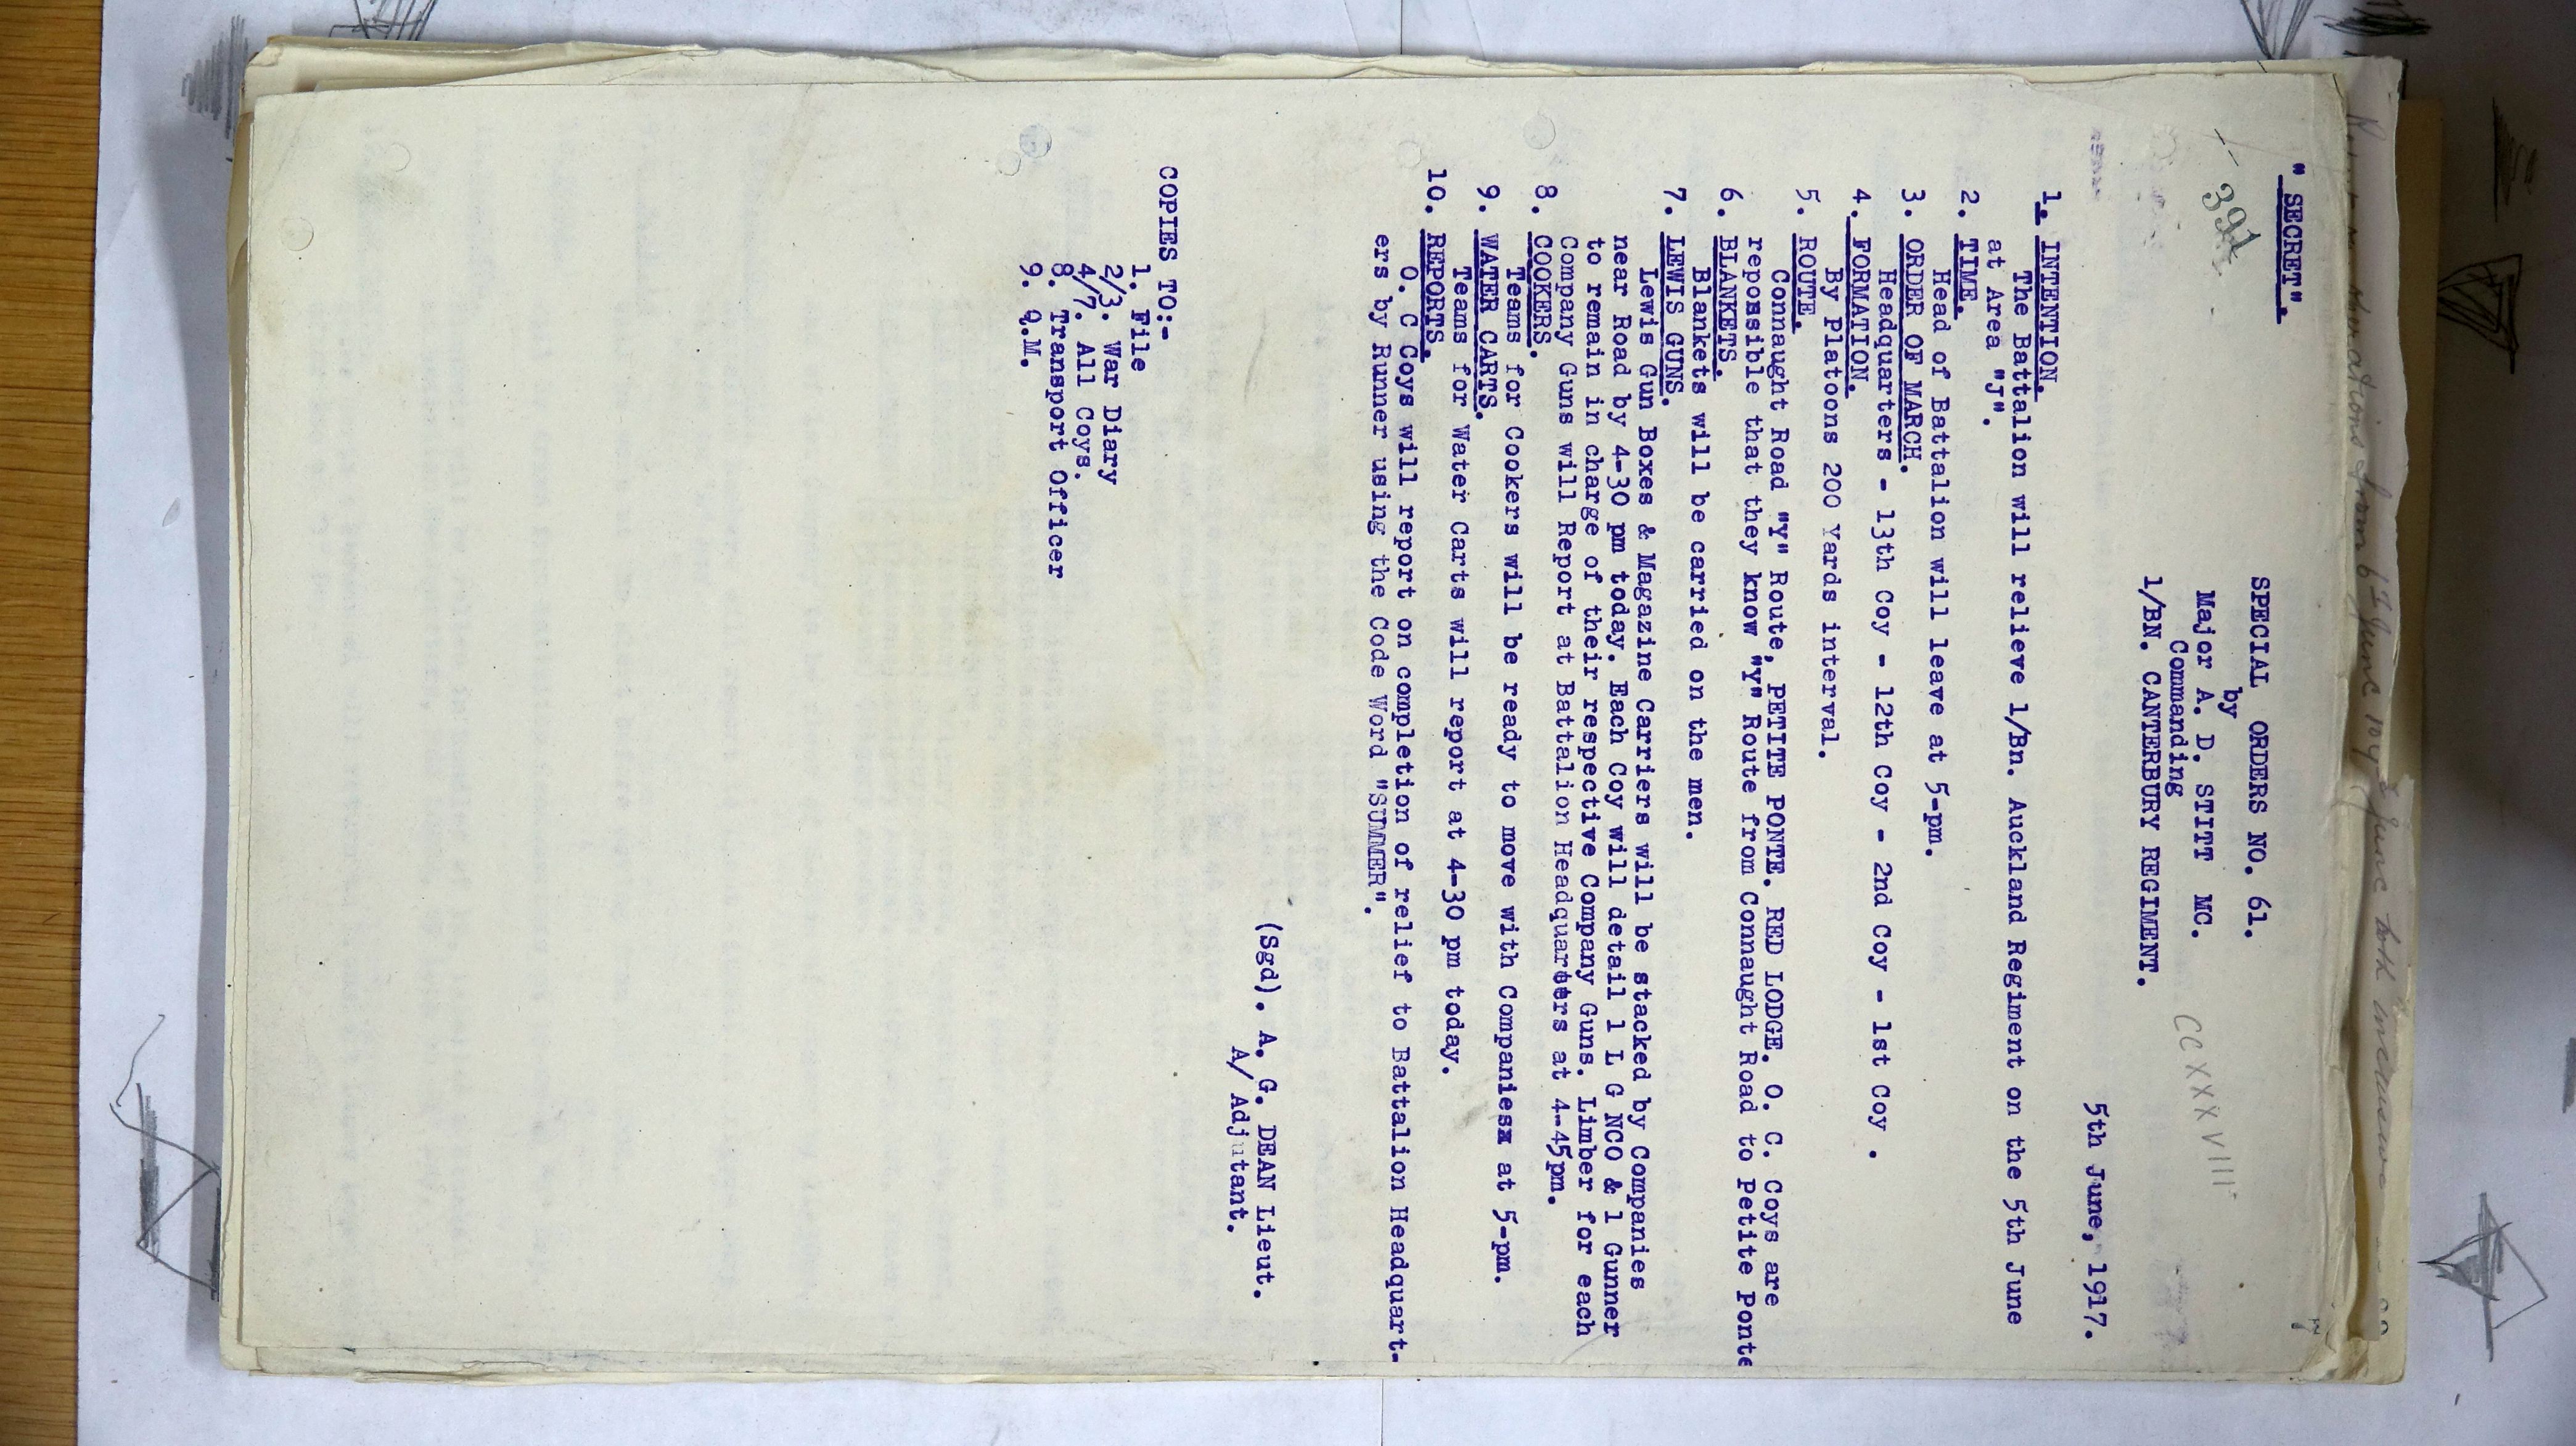 " SECRET".
391
SPECIAL ORDERS NO. 61.
by
Major A. D. STITT MC.
Commanding
1/BN. CANTERBURY REGIMENT.
CCXXVIII
5th June, 1917.
1. INTENTION.
The Battalion will relieve 1/Bn. Auckland Regiment on the 5th June
at Area "J".
2. TIME.
Head of Battalion will leave at 5-pm.
3. ORDER OF MARCH.
Headquarters - 13th Coy - 12th Coy - 2nd Coy - 1st Coy .
4. FORMATION.
By Platoons 200 Yards interval.
5. ROUTE.
Connaught Road "Y" Route, PETITE PONTE. RED LODGE. O. C. Coys are
repossible that they know "Y" Route from Connaught Road to Petite Ponte
6. BLANKETS.
Blankets will be carried on the men.
7. LEWIS GUNS.
Lewis Gun Boxes & Magazine Carriers will be stacked by Companies
near Road by 4-30 pm today. Each Coy will detail 1 L G NCO & 1 Gunner
to remain in charge of their respective Company Guns. Limber for each
Company Guns will Report at Battalion Headquarters at 4-45pm.
8. COOKERS.
Teams for Cookers will be ready to move with Companiesx at 5-pm.
9. WATER CARTS.
Teams for Water Carts will report at 4-30 pm today.
10. REPORTS.
O. C Coys will report on completion of relief to Battalion Headquart-
ers by Runner using the Code Word "SUMMER".
(Sgd). A. G. DEAN Lieut.
A/ Adjutant.
COPIES TO:-
1. File
2/3. War Diary
4/7. All Coys.
8. Transport Officer
9. Q.M.